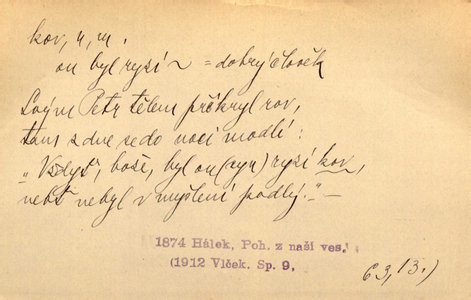 kov, u, m.
on byl ryzí ~ = dobrý člověk
Svým Petr tělem překryl rov,
tam z dne se do noci modlí:
"Vždyť, bože, byl on (syn) ryzí kov,
nebť nebyl v myšlení podlý." —
1874 Hálek, Poh. z naší ves.
(1912 Vlček. Sp. 9,
63, 13.)